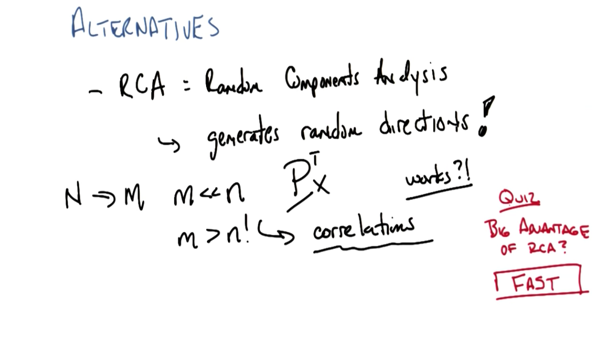 ALTERNATIVES
- RCA = Random Components Analysis
↳ generates random directions!
N ⇒ M m << n PᵀX works?!
m > n! ↳ correlations
QUIZ
BIG ADVANTAGE
OF RCA?
FAST